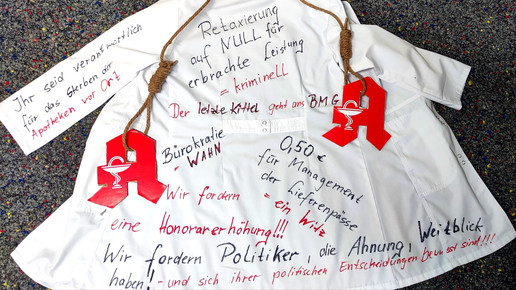 Ihr seid verantwortlich
für das Sterben der
Apotheken vor Ort
Retaxierung
auf NULL für
erbrachte Leistung
= kriminell
Der letzte Kittel geht ans BMG
Bürokratie
- WAHN
0,50 €
für Management
der Lieferenpässe
= ein Witz
Wir fordern
eine Honorarerhöhung!!!
Wir fordern Politiker, die Ahnung, Weitblick
haben! - und sich ihrer politischen Entscheidungen bewusst sind!!!!